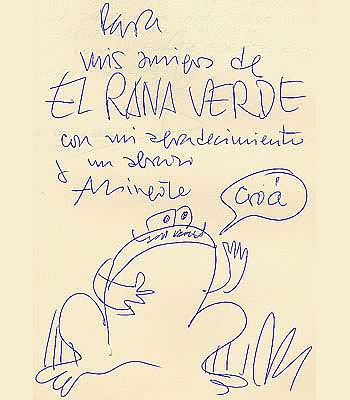 Para
mis amigos de
EL RANA VERDE
con mi agradecimiento
y un abrazo
Mingote
Croá